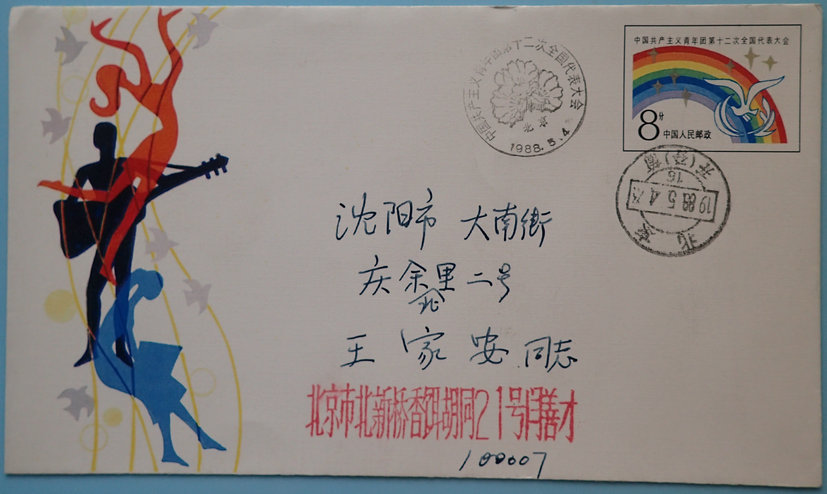 中国共产主义青年团第十二次全国代表大会
8分
中国人民邮政
中国共产主义青年团第十二次全国代表大会
北京
1988.5.4
北京
1988.5.4
16
沈阳市 大南街
庆余里二号
北
王家安 同志
北京市北新桥香饵胡同21号闫善才
100007